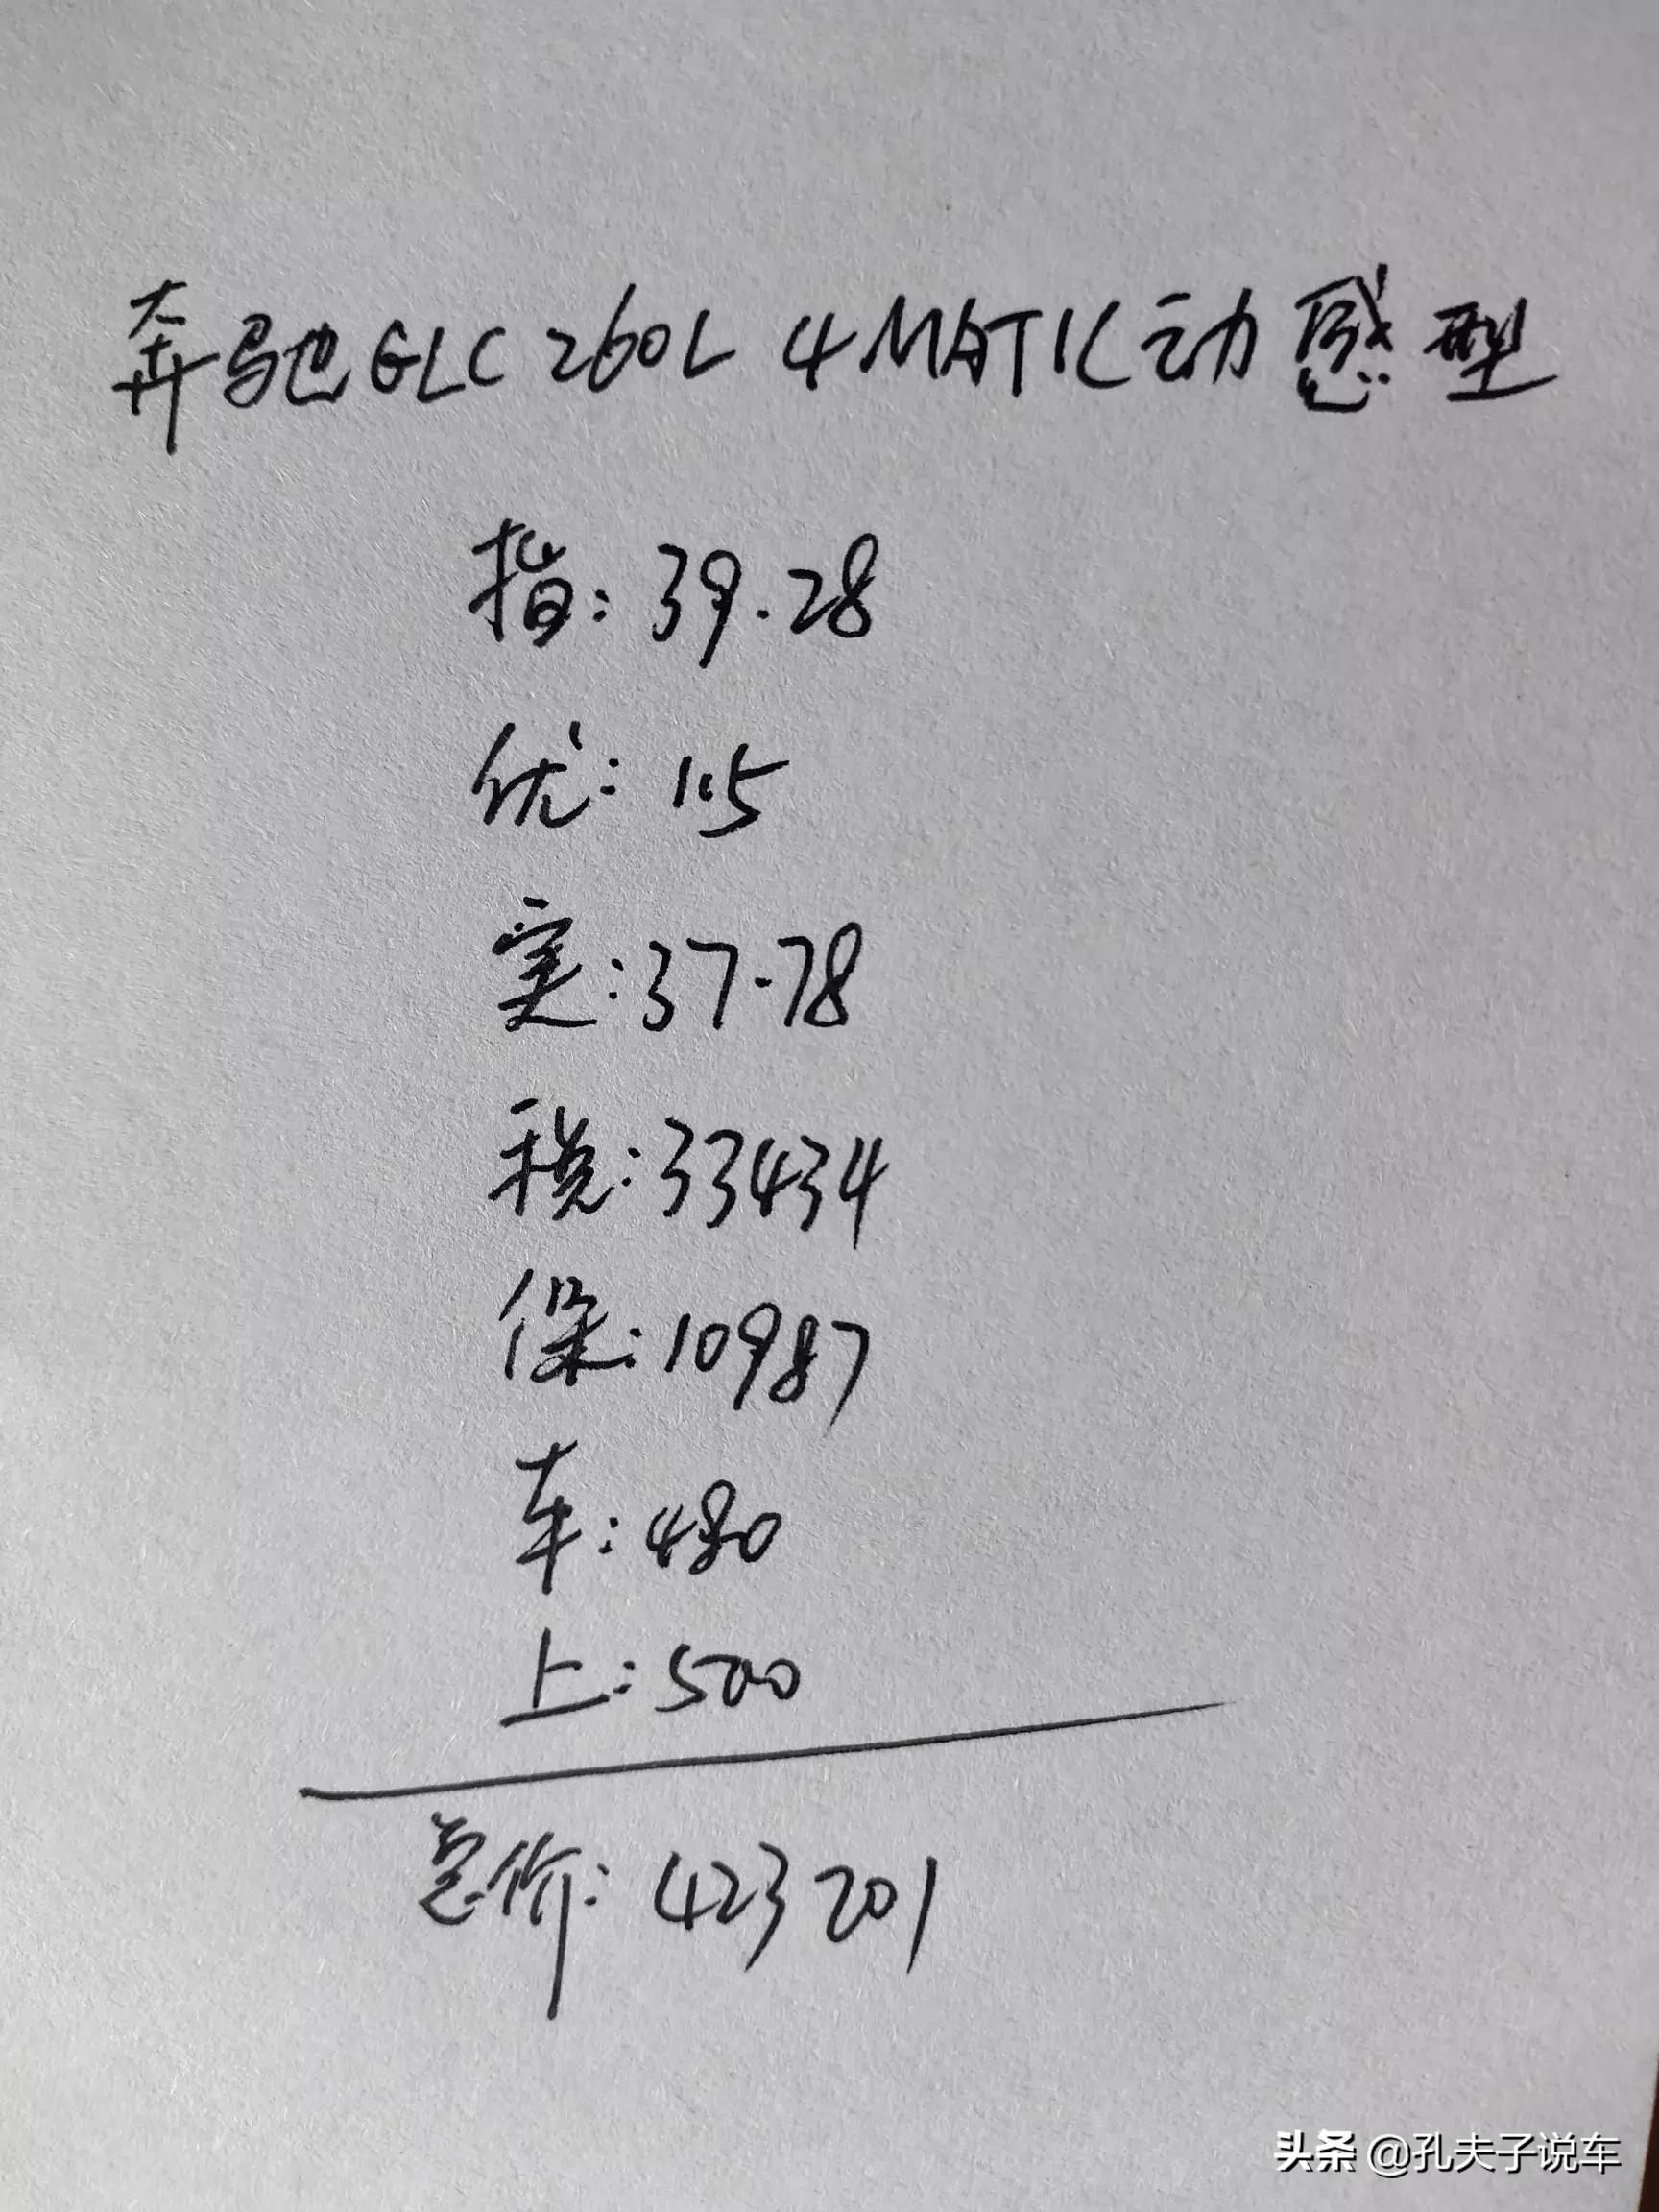 奔驰GLC 260L 4MATIC动感型
指:39.28
优:1.5
实:37.78
税:33434
保:10987
车:480
上:500
总价:423201
头条 @孔夫子说车